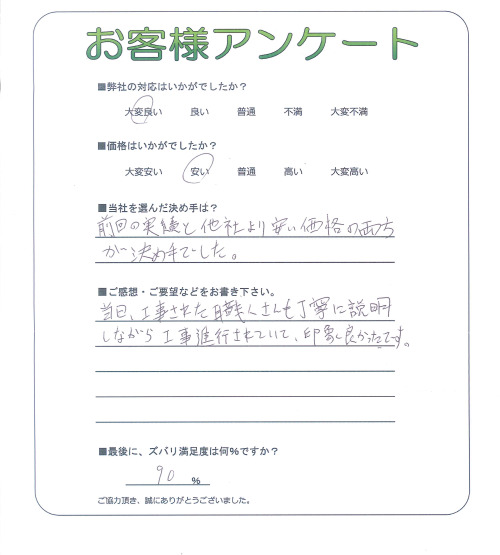 お客様アンケート
■弊社の対応はいかがでしたか？
大変良い　良い　普通　不満　大変不満
■価格はいかがでしたか？
大変安い　安い　普通　高い　大変高い
■当社を選んだ決め手は？
前回の実績と他社より安い価格の両方
が決め手でした。
■ご感想・ご要望などをお書き下さい。
当日、工事された職人さんも丁寧に説明
しながら工事進行されていて、印象良かったです。
■最後に、ズバリ満足度は何%ですか？
90 %
ご協力頂き、誠にありがとうございました。